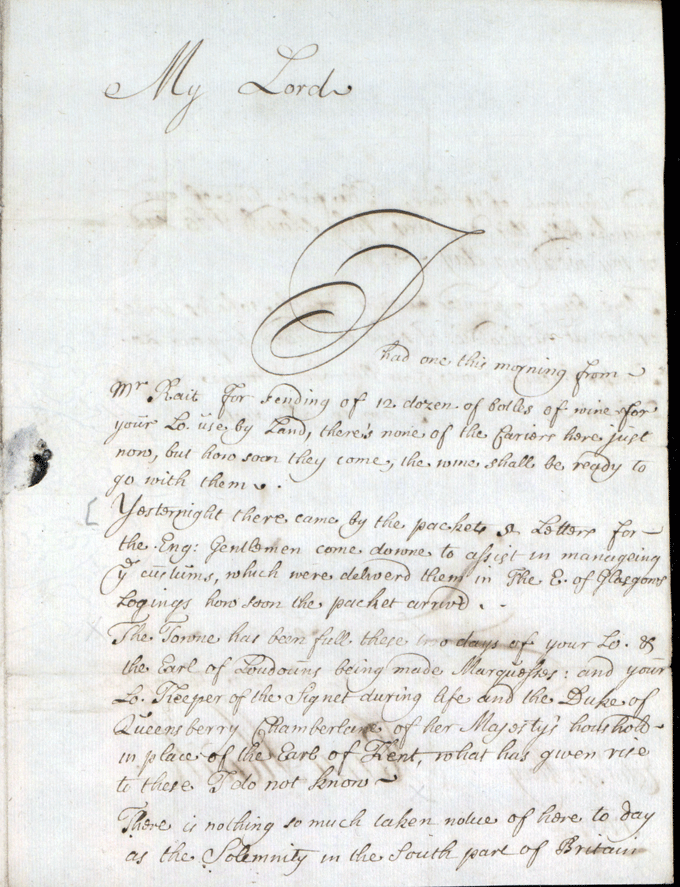 My Lord
I
had one this morning from
Mr Rait for sending of 12 dozen of botles of wine for
your Lo. use by Land, there's none of the Cariers here just
now, but how soon they come, the wine shall be ready to
go with them.
Yesternight there came by the packet Letters for
the Eng: Gentlemen come downe to assist in manageing
ye custums, which were deliverd them in The E. of Glasgows
Logings how soon the packet arrivd.
The Towne has been full these two days of your Lo. &
the Earl of Loudouns being made Marquesses: and your
Lo. Keeper of the Signet during life and the Duke of
Queensberry Chamberlaine of her Majesty's houshold
in place of the Earl of Kent, what has given rise
to these I do not know
There is nothing so much taken notice of here to day
as the Solemnity in the South part of Britain